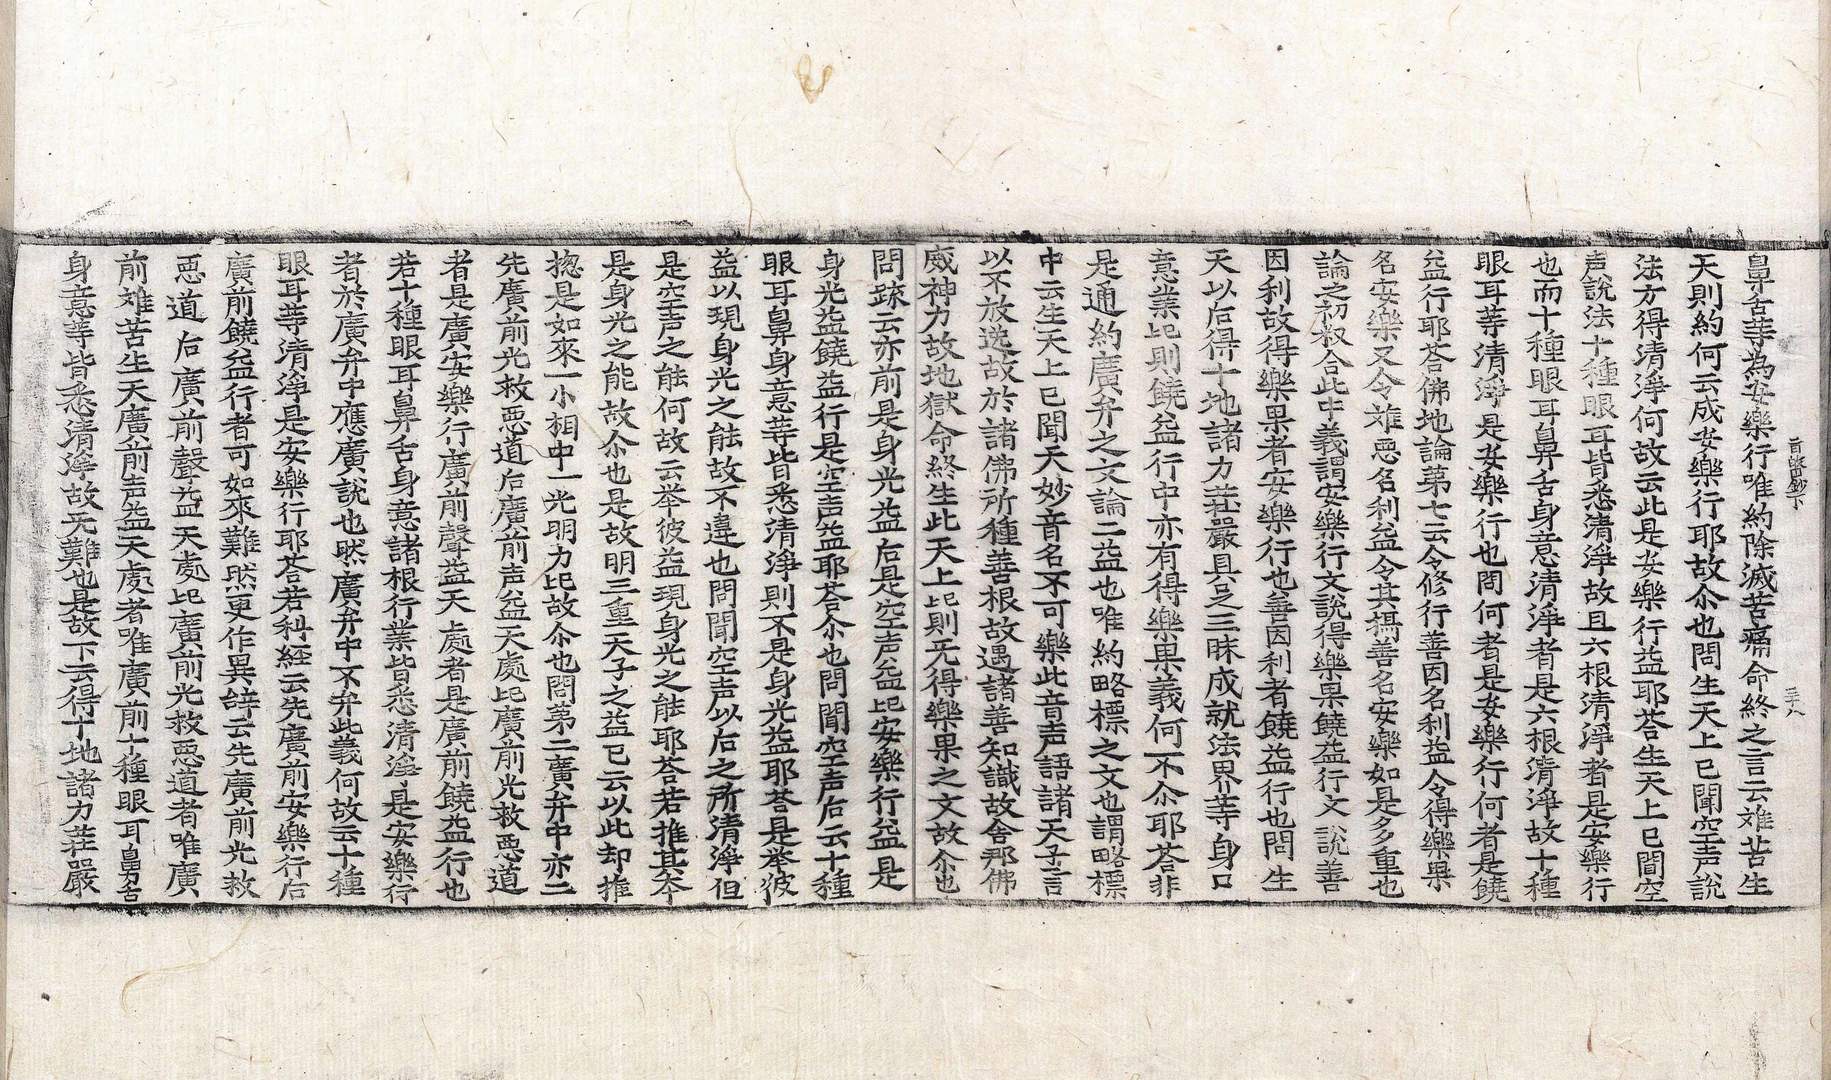 鼻舌等為安樂行唯約除滅苦痛命終之言云难苦生
天則約何云成安樂行耶故尒也問生天上已聞空声說
法方得清淨何故云此是安樂行益耶荅生天上已聞空
声說法十種眼耳皆悉清淨故且六根清淨者是安樂行
也而十種眼耳鼻舌身意清淨者是六根清淨故十種
眼耳等清淨是安樂行也問何者是安樂行何者是饒
益行耶荅佛地論第七云令修行善因名利益令得樂果
名安樂又令难惡名利益令其攝善名安樂如是多重也
論之初叙合此中義謂安樂行文說得樂果饒益行文說善
因利故得樂果者安樂行也善因利者饒益行也問生
天以后得十地諸力荘嚴具足三昧成就法界等身口
意業㠯則饒益行中亦有得樂果義何不尒耶荅非
是通約廣弁之文論二益也唯約略標之文也謂略標
中云生天上已聞天妙音名不可樂此音声語諸天子言
以不放逸故於諸佛所種善根故遇諸善知識故舍那佛
威神力故地獄命終生此天上㠯則旡得樂果之文故尒也
問䟽云亦前是身光益后是空声益㠯安樂行益是
身光益饒益行是空声益耶荅尒也問聞空声后云十種
眼耳鼻身意等皆悉清淨則不是身光益耶荅是举彼
益以現身光之能故不違也問聞空声以后之所清淨但
是空声之能何故云举彼益現身光之能耶荅若推其本
是身光之能故尒也是故明三重天子之益已云以此却推
揔是如來一小相中一光明力㠯故尒也問第二廣弁中亦二
先廣前光救惡道后廣前声益天處㠯廣前光救惡道
者是廣安樂行廣前聲益天處者是廣前饒益行也
若十種眼耳鼻舌身意諸根行業皆悉清淨是安樂行
者於廣弁中應廣說也然廣弁中不弁此義何故云十種
眼耳等清淨是安樂行耶荅若科經云先廣前安樂行后
廣前饒益行者可如來難然更作異辝云先廣前光救
惡道后廣前聲益天處㠯廣前光救惡道者唯廣
前难苦生天廣前声益天處者唯廣前十種眼耳鼻舌
身意等皆悉清淨故旡難也是故下云得十地諸力荘嚴